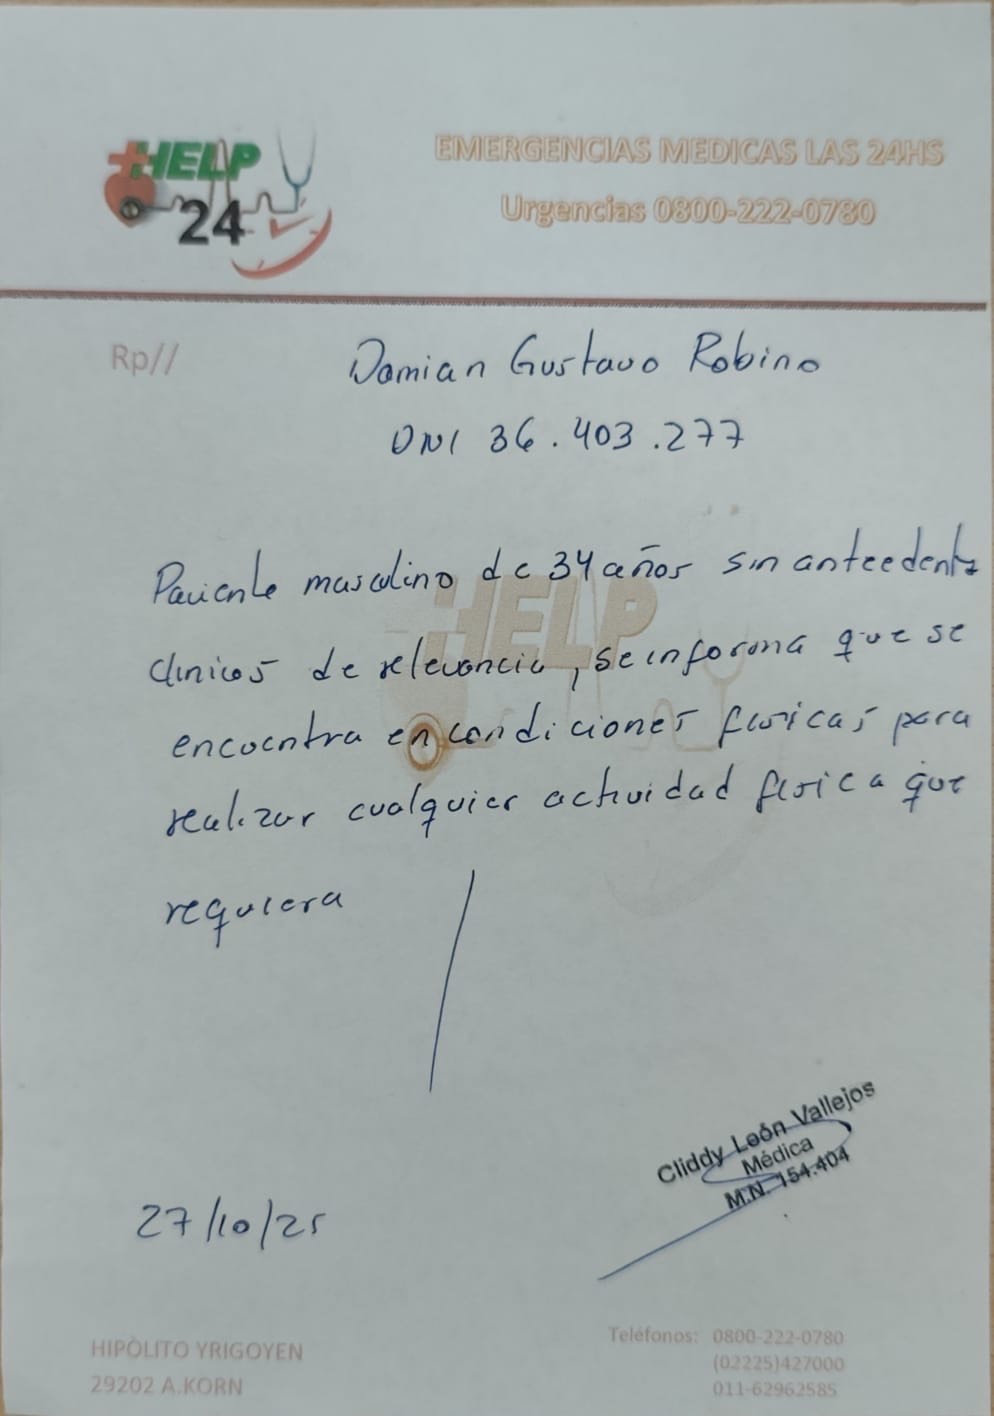 HELP
24
EMERGENCIAS MEDICAS LAS 24HS
Urgencias 0800-222-0780
Rp//
Damian Gustavo Robino
DNI 36.403.277
Paciente masculino de 34 años sin antecedentes
clinicos de relevancia, se informa que se
encuentra en condiciones fisicas para
realizar cualquier actividad fisica que
requiera
HELP
Cliddy León Vallejos
Médica
M.N. 154.404
27/10/25
HIPÒLITO YRIGOYEN
29202 A.KORN
Teléfonos: 0800-222-0780
(02225)427000
011-62962585